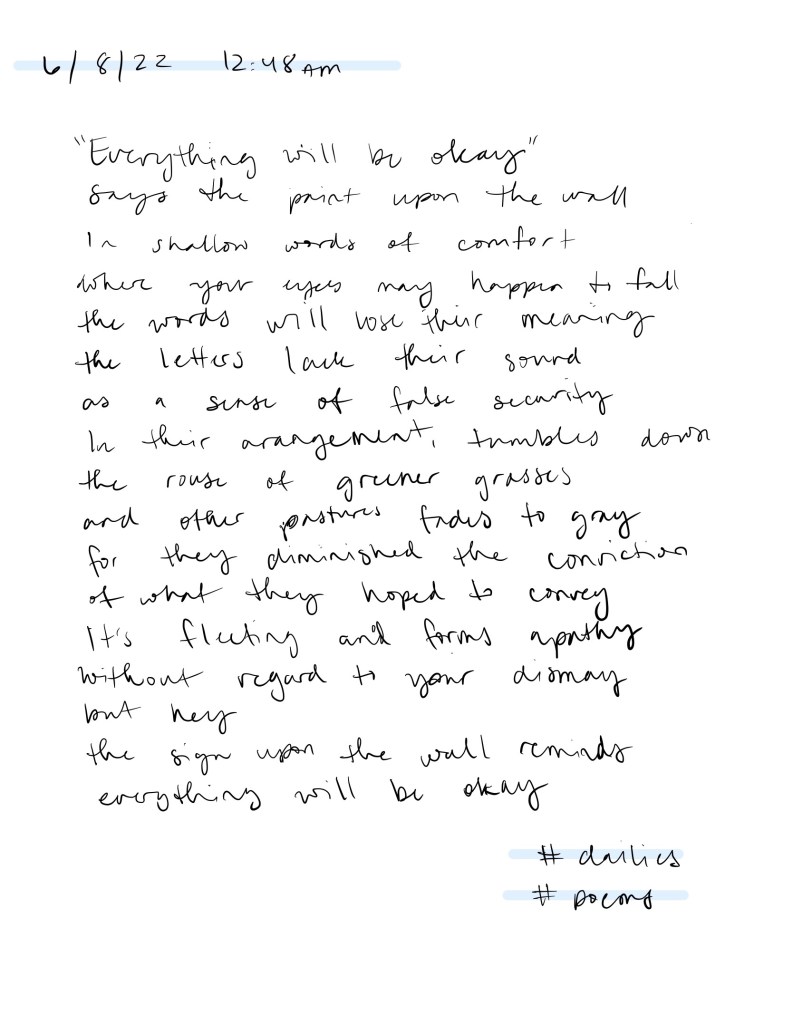 6/8/22 12:48 AM
"Everything will be okay"
says the paint upon the wall
In shallow words of comfort
where your eyes may happen to fall
the words will lose their meaning
the letters lack their sound
as a sense of false security
In their arangement, tumbles down
the rouse of greener grasses
and other pastures fades to gray
for they diminished the conviction
of what they hoped to convey
It's fleeting and forms apathy
without regard to your dismay
but hey
the sign upon the wall reminds
everything will be okay
# dailies
# poems